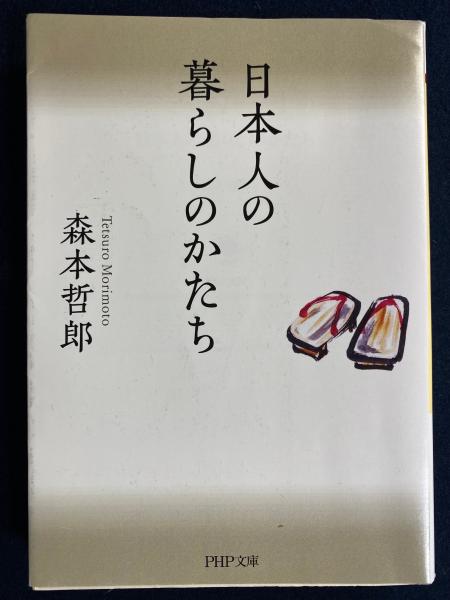 日本人の
暮らしのかたち
森本哲郎
Tetsuro Morimoto
PHP文庫